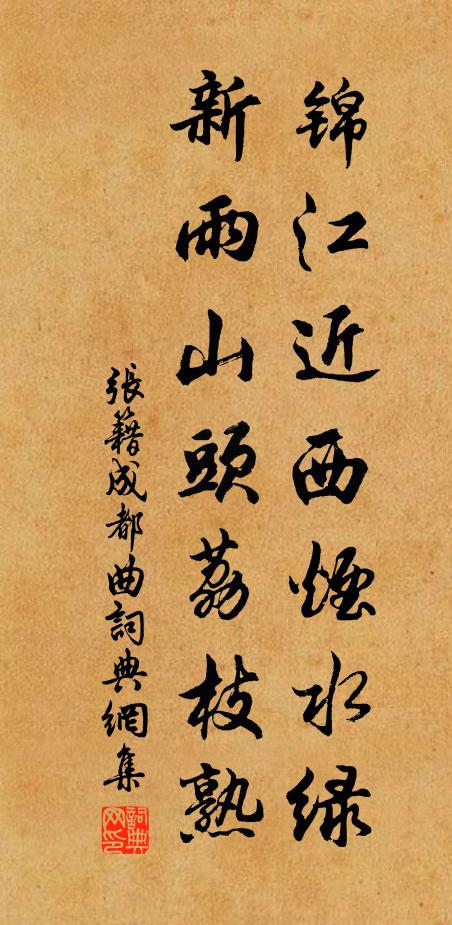 锦江近西煙水绿
新雨山頭荔枝熟
張籍成都曲詞典網集
詞典网印